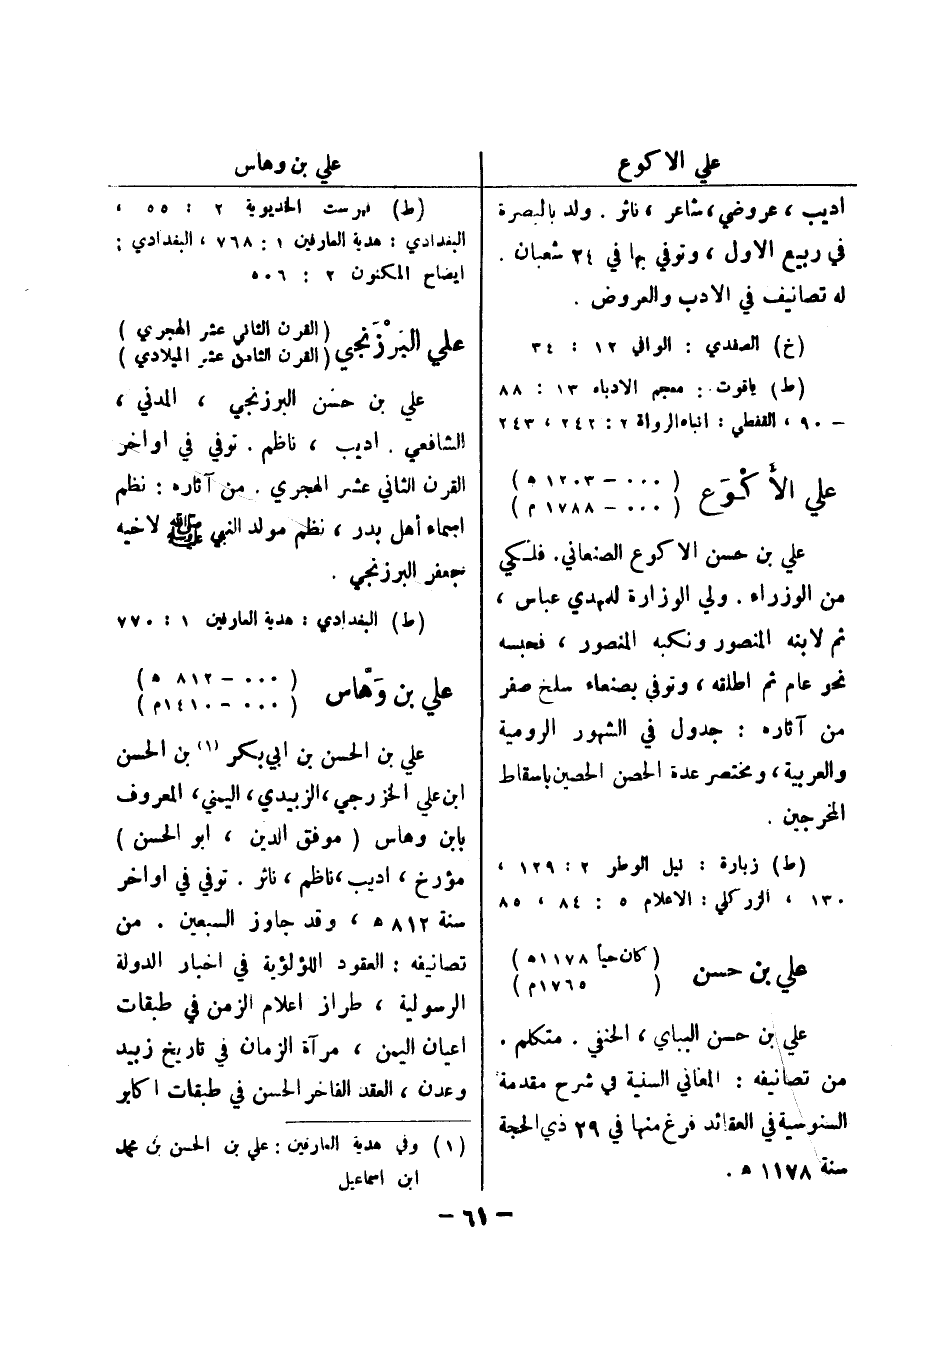 علي الاكوع
اديب ، عروضي، شاعر ، ناثر . ولد بالبصرة
في ربيع الاول ، وتوفي بها في ٢٤ شعبان .
له تصانيف في الادب والعروض .
(خ) الصفدي : الوافي ١٢ : ٣٤
(ط) ياقوت : معجم الادباء ١٣ : ٨٨
– ٩٠ ، القفطي : انباه الرواة ٢ : ٢٤٢ ، ٢٤٣
علي الأَكْوَع
( ٠٠٠ – ١٢٠٣ ه )
( ٠٠٠ – ١٧٨٨ م )
علي بن حسن الاكوع الصنعاني. فلكي
من الوزراء . ولي الوزارة للمهدي عباس ،
ثم لابنه المنصور ونكبه المنصور ، فحبسه
نحو عام ثم اطلقه ، وتوفي بصنعاء سلخ صفر
من آثاره : جدول في الشهور الرومية
والعربية ، ومختصر عدة الحصن الحصين باسقاط
المخرجين .
(ط) زبارة : نيل الوطر ٢ : ١٢٩ ،
١٣٠ ، الزركلي : الاعلام ٥ : ٨٤ ، ٨٥
علي بن حسن
( كان حياً ١١٧٨ ه )
( ١٧٦٥ م )
علي بن حسن الببباي ، الحنفي . متكلم .
من تصانيفه : المعاني السنية في شرح مقدمة
السنوسية في العقائد فرغ منها في ٢٩ ذي الحجة
سنة ١١٧٨ ه .
علي بن وهاس
(ط) فهرست الخديوية ٢ : ٥٥ ،
البغدادي : هدية العارفين ١ : ٧٦٨ ، البغدادي :
ايضاح المكنون ٢ : ٥٠٦
علي البَرْزَنجي
( القرن الثاني عشر الهجري )
( القرن الثامن عشر الميلادي )
علي بن حسن البرزنجي ، المدني ،
الشافعي . اديب ، ناظم . توفي في اواخر
القرن الثاني عشر الهجري . من آثاره : نظم
اسماء أهل بدر ، نظم مولد النبي ﷺ لاخيه
جعفر البرزنجي .
(ط) البغدادي : هدية العارفين ١ : ٧٧٠
علي بن وَهَّاس
( ٠٠٠ – ٨١٢ ه )
( ٠٠٠ – ١٤١٠ م )
علي بن الحسن بن ابي بكر (١) بن الحسن
ابن علي الخزرجي ، الزبيدي ، اليمني ، المعروف
بابن وهاس ( موفق الدين ، ابو الحسن )
مؤرخ ، اديب ، ناظم ، ناثر . توفي في اواخر
سنة ٨١٢ ه ، وقد جاوز السبعين . من
تصانيفه : العقود اللؤلؤية في اخبار الدولة
الرسولية ، طراز اعلام الزمن في طبقات
اعيان اليمن ، مرآة الزمان في تاريخ زبيد
وعدن ، العقد الفاخر الحسن في طبقات اكابر
(١) وفي هدية العارفين : علي بن الحسن بن محمد
ابن اسماعيل
– ٦١ –